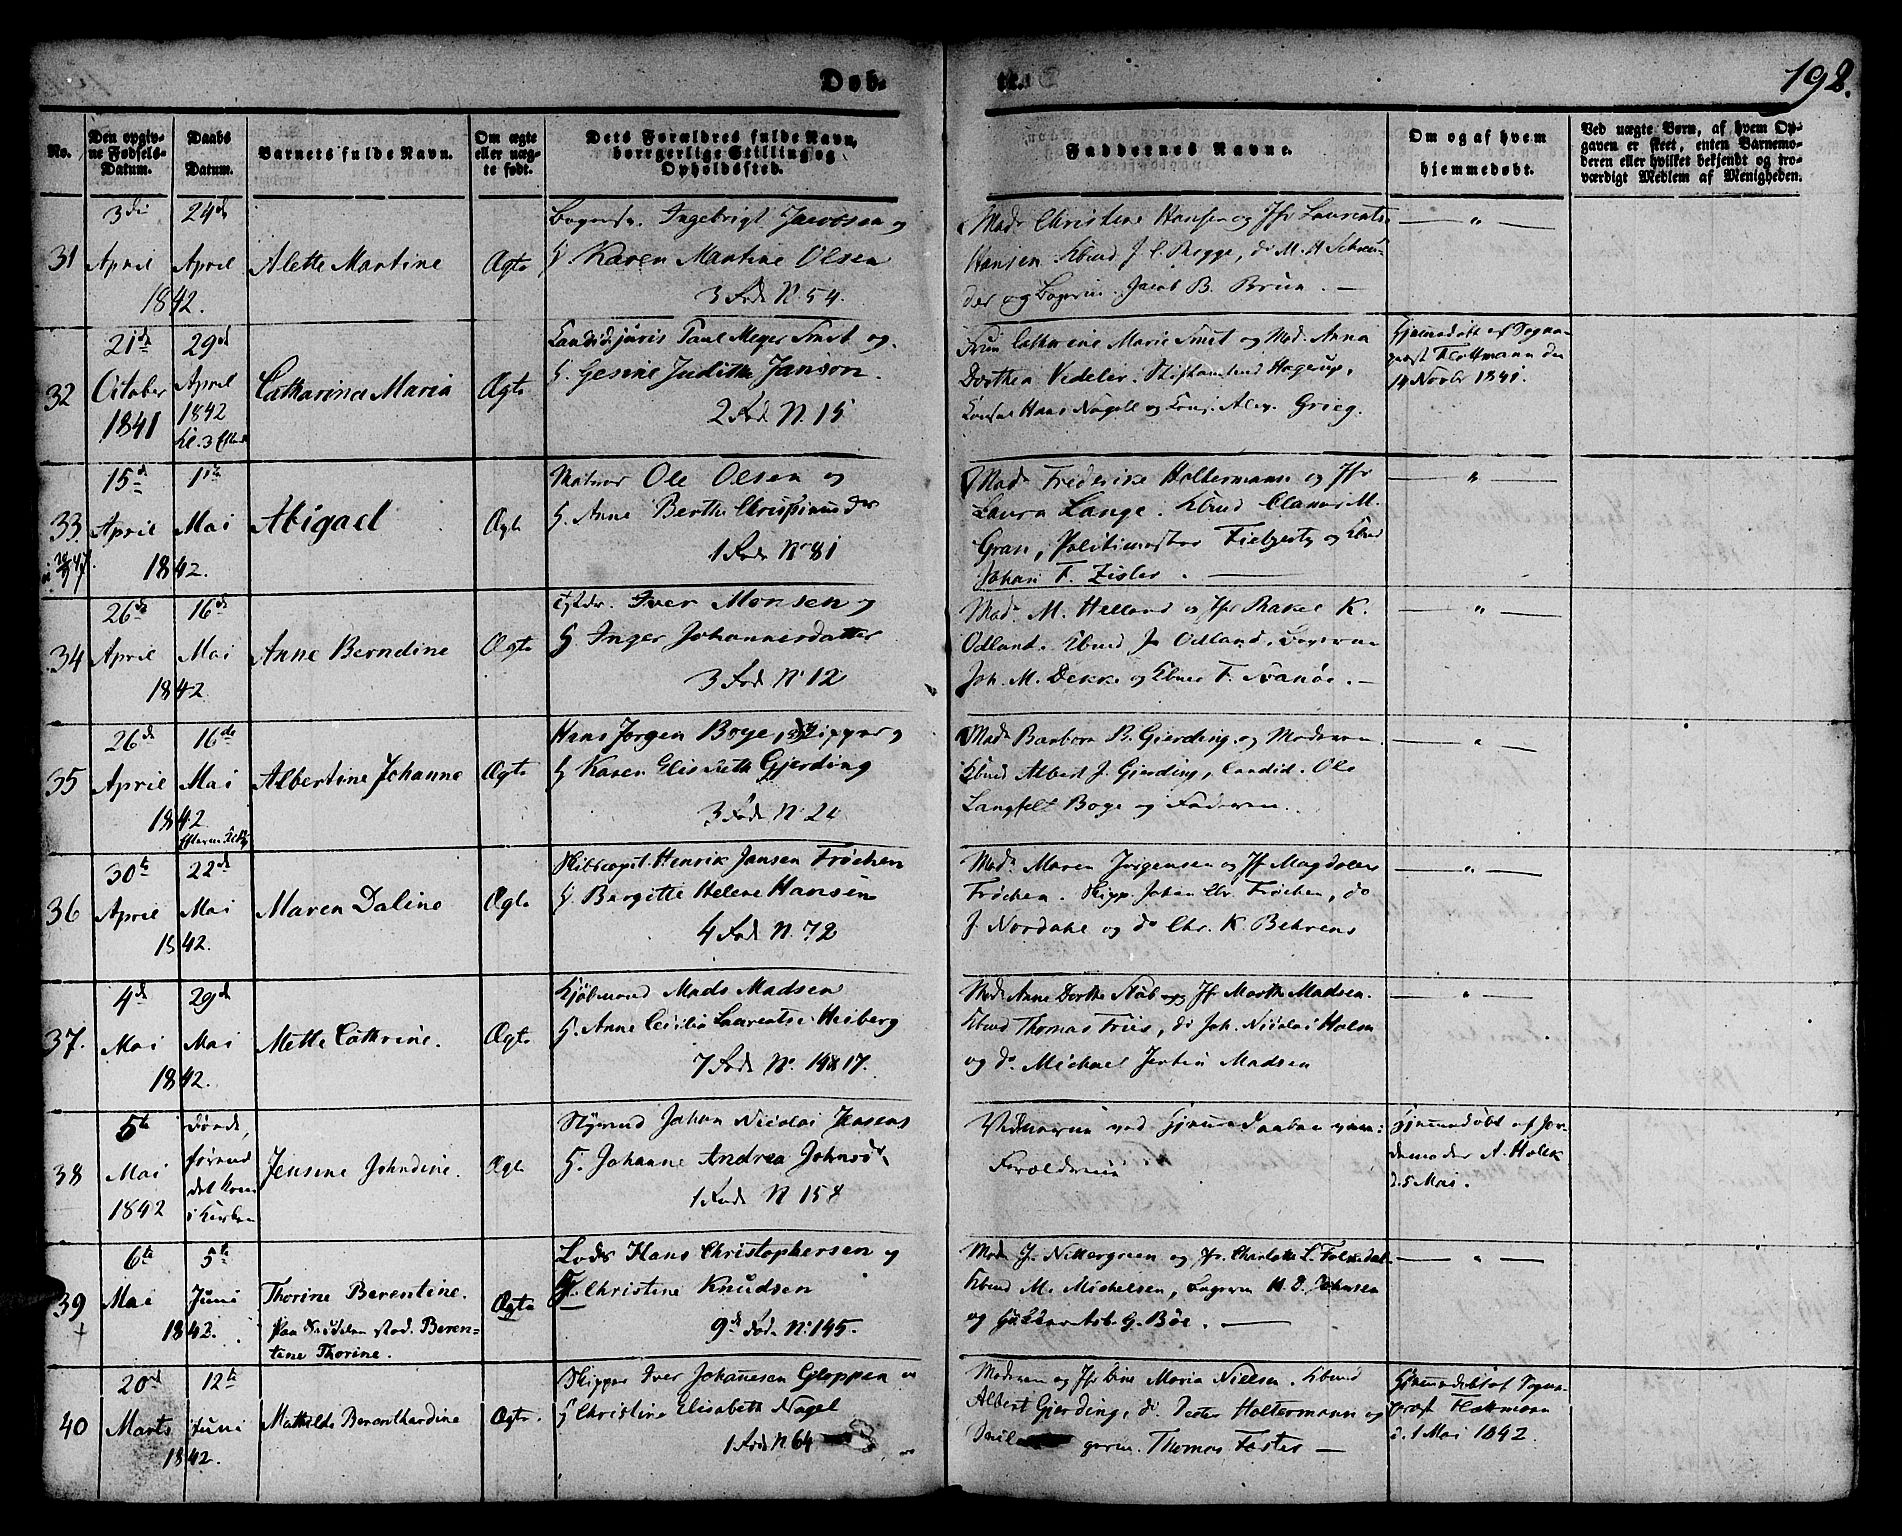 Døb-
te.
198.
No.
Den opgiv-
ne Fødsels-
Datum.
Daabs
Datum.
Barnets fulde Navn.
Om ægte
eller uæg-
te født.
Dets Forældres fulde Navn,
borgerlige Stilling og
Opholdssted.
Faddernes Navne.
Om og af hvem
hjemmedøbt.
Ved uægte Børn, af hvem Op-
gaven er skeet, enten Barnemo-
deren eller hvilket bekjendt og tro-
værdigt Medlem af Menigheden.
31
April
24de
April
1842.
Alette Martine
Ægte
Ingebrigt Jacobsen og
H. Karen Martine Olsen
3 Fode N. 54.
Mad. Christine Hansen og Jfr Laurentse
Hansen. Kbmd J. C. Rogge, do M. H. Schreu-
der og Jacob B. Bruun. —
— " —
32
21de
October
1841
29de
April
1842
Kl. 3 Efterm
Catharina Maria
Ægte
Candid. juris Paul Meyer Smit og
H. Gesine Judithe Janson.
2 Fode N. 15
Fru Cathrine Marie Smit og Mad. Anna
Dorthea Vedeler. Stiftamtmd Hagerup,
Consul Hans Nagell og Cons. Alex. Grieg.
Hjemmedøbt af Sogne-
præst Flottmann den
14 Novbr 1841.
33
15de
April
1ste
Mai
1842.
Abigael
Ægte
Matros Ole Olsen og
H. Anne Berthe Christiansdtr
1 Fode No 81
Mad. Frederike Holtermann og Jfr
Laura Lange. Kbmd Claus M.
Gran, Politimester og Kbmd
Johan F. Zisler. —
— " —
34
26de
April
16de
Mai
1842.
Anne Berndine
Ægte
Iver Monsen og
H. Inger Johannesdatter
3 Fode N. 12
Mad. M. Helland og Jfr Rakel K.
Odland. Kbmd J. Odland,
Joh. M. Dekke og Kbmd F. Svanøe. —
— " —
35
26de
April
16de
Mai
1842.
Albertine Johanne
Ægte
Hans Jørgen Boye, Skipper og
H. Karen Elisabeth Gjerding
3 Fode N. 24
Mad. Barbora B. Gjerding og Moderen.
Kbmd Albert J. Gjerding, Candid. Ole
Langfelt Boye og Faderen.
— " —
36
30te
April
22de
Mai
1842.
Maren Daline
Ægte
Skibscapt. Henrik Jansen Frøchen
H. Bergitte Helene Hansen
4 Fode N. 72
Mad. Maren Jørgensen og Jf Magdalene
Frøchen. Skipp. Johan Chr. Frøchen, do
J. Nordahl og do Chr. K. Behrens
— " —
37.
4de
Mai
29de
Mai
1842.
Mette Cathrine.
Ægte
Kjøbmand Mads Madsen
H. Anne Cecilie Laurentse Heiberg
7 Fode No. 14 & 17.
Mad. Anne Dorthe Stub og Jfr Marthe Madsen.
Kbmd Thomas Friis, do Joh. Nicolai Holm
og do Michael Jertin Madsen
— " —
38
5te
Mai
1842
døde,
førend
det kom
i Kirken
Jensine Johndine.
Ægte
Styrmd Johan Nicolai Jensens
H. Johanne Andrea Johnsdr.
1 Fode N 158
Vidnerne ved Hjemmedaaben vare:
Forældrene
Hjemmedøbt af Jor-
demoder A. Holck
d. 5 Mai.
39
†
6te
Mai
5te
Juni
1842.
Thorine Berentine.
paa Sedelen stod. Beren-
tine Thorine.
Ægte
Lods Hans Christophersen og
H. Christine Knudsen
9de Fode. No. 145.
Mad. J. Nittergreen og Jfr. Charlotte L. Folkedal
Kbmd M. Michelsen, H. D. Johnsen
og Asb. G. Bøe. —
— " —
40
20de
Marts
12te
Juni
1842.
Mathilde Berenthardine
Ægte.
Skipper Iver Johannesen Gloppen og
H Christine Elisabeth Nagel
1 Fode N 64
Moderen og Jfr Line Maria Nielsen. Kbmd
Albert Gjerding, do. Peter Holtermann og
Thomas Foster —
Hjemmedøbt af Sogne-
præst Flottmann
d. 1 Mai 1842.